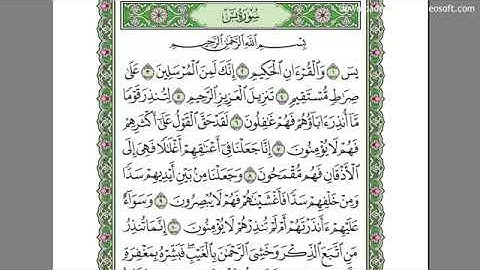 سُورَةُ يسٓ
بِسْمِ ٱللَّهِ ٱلرَّحْمَٰنِ ٱلرَّحِيمِ
يسٓ ١ وَٱلْقُرْءَانِ ٱلْحَكِيمِ ٢ إِنَّكَ لَمِنَ ٱلْمُرْسَلِينَ ٣ عَلَىٰ
صِرَٰطٍ مُّسْتَقِيمٍ ٤ تَنزِيلَ ٱلْعَزِيزِ ٱلرَّحِيمِ ٥ لِتُنذِرَ قَوْمًا
مَّآ أُنذِرَ ءَابَآؤُهُمْ فَهُمْ غَٰفِلُونَ ٦ لَقَدْ حَقَّ ٱلْقَوْلُ عَلَىٰٓ أَكْثَرِهِمْ
فَهُمْ لَا يُؤْمِنُونَ ٧ إِنَّا جَعَلْنَا فِىٓ أَعْنَٰقِهِمْ أَغْلَٰلًا فَهِىَ إِلَى
ٱلْأَذْقَانِ فَهُم مُّقْمَحُونَ ٨ وَجَعَلْنَا مِنۢ بَيْنِ أَيْدِيهِمْ سَدًّا
وَمِنْ خَلْفِهِمْ سَدًّا فَأَغْشَيْنَٰهُمْ فَهُمْ لَا يُبْصِرُونَ ٩ وَسَوَآءٌ
عَلَيْهِمْ ءَأَنذَرْتَهُمْ أَمْ لَمْ تُنذِرْهُمْ لَا يُؤْمِنُونَ ١٠ إِنَّمَا تُنذِرُ
مَنِ ٱتَّبَعَ ٱلذِّكْرَ وَخَشِىَ ٱلرَّحْمَٰنَ بِٱلْغَيْبِ ۖ فَبَشِّرْهُ بِمَغْفِرَةٍ وَ